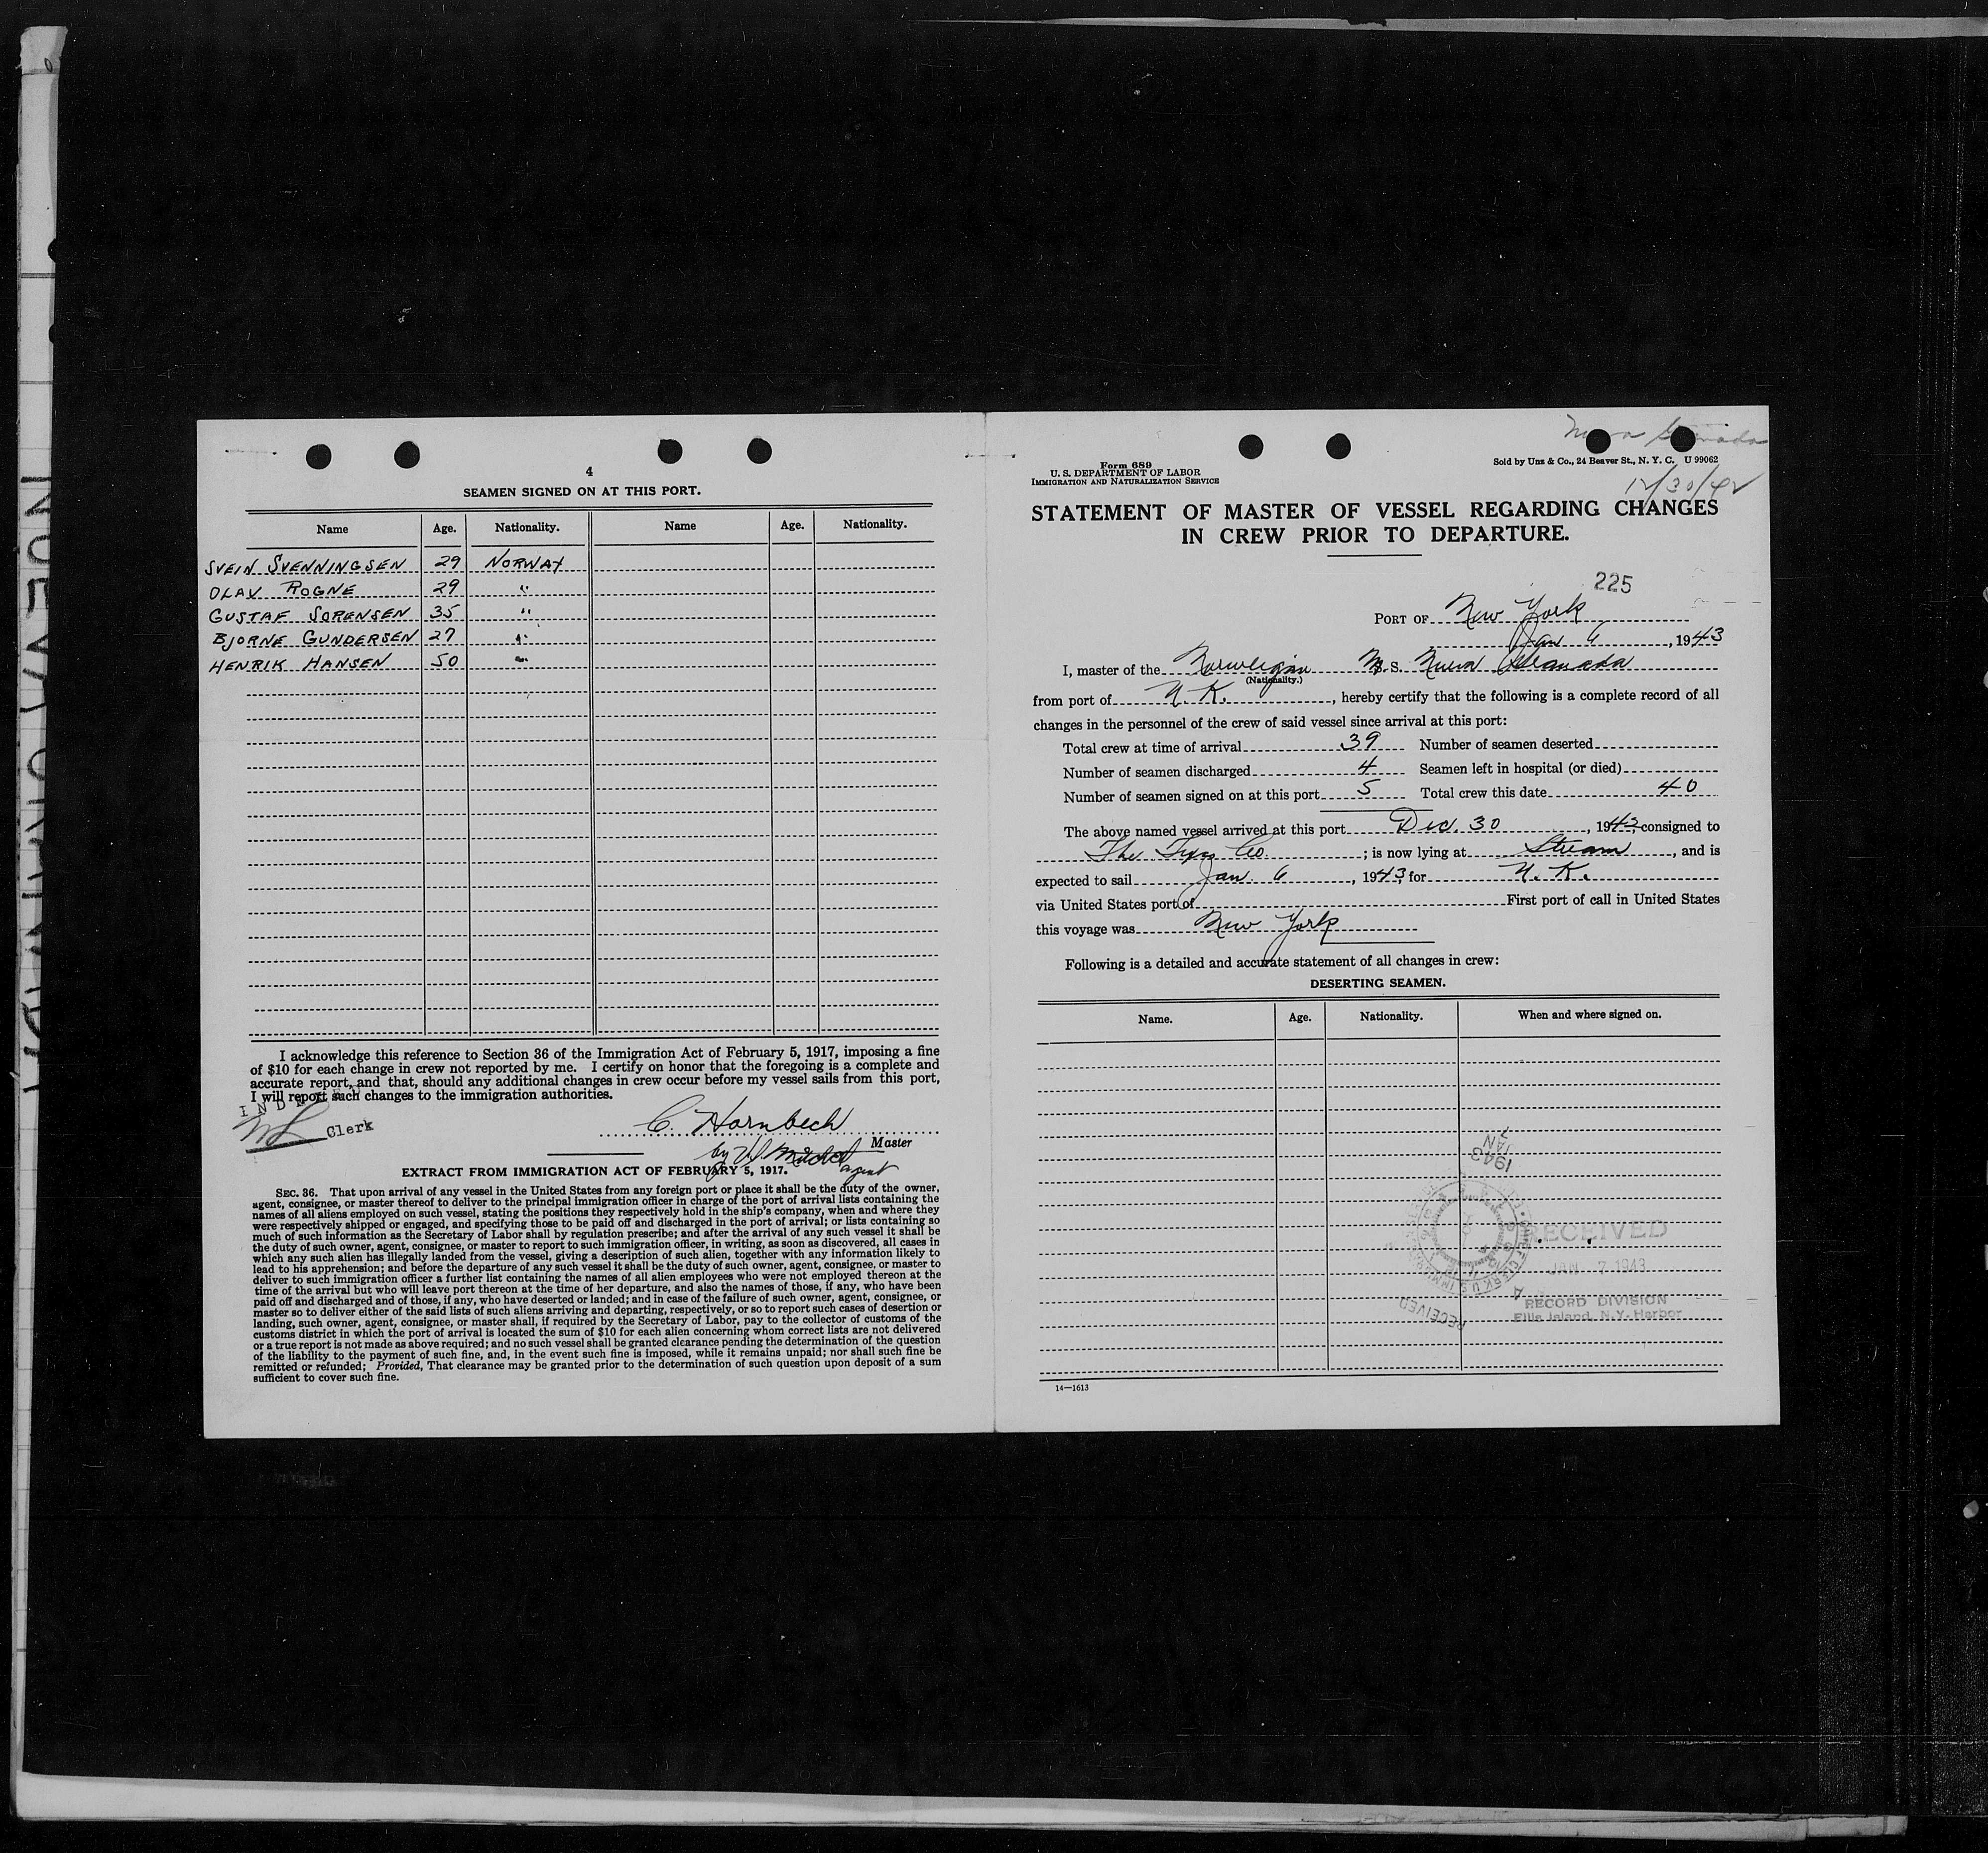 4
SEAMEN SIGNED ON AT THIS PORT.
Name Age. Nationality. Name Age. Nationality.
SVEIN SVENNINGSEN 29 NORWAY
OLAV ROGNE 29 "
GUSTAF SORENSEN 35 "
BJORNE GUNDERSEN 27 "
HENRIK HANSEN 50 "
I acknowledge this reference to Section 36 of the Immigration Act of February 5, 1917, imposing a fine
of $10 for each change in crew not reported by me. I certify on honor that the foregoing is a complete and
accurate report, and that, should any additional changes in crew occur before my vessel sails from this port,
I will report such changes to the immigration authorities.
Clerk
C. Hornbech
Master
by
agent
EXTRACT FROM IMMIGRATION ACT OF FEBRUARY 5, 1917.
SEC. 36. That upon arrival of any vessel in the United States from any foreign port or place it shall be the duty of the owner,
agent, consignee, or master thereof to deliver to the principal immigration officer in charge of the port of arrival lists containing the
names of all aliens employed on such vessel, stating the positions they respectively hold in the ship's company, when and where they
were respectively shipped or engaged, and specifying those to be paid off and discharged in the port of arrival; or lists containing so
much of such information as the Secretary of Labor shall by regulation prescribe; and after the arrival of any such vessel it shall be
the duty of such owner, agent, consignee, or master to report to such immigration officer, in writing, as soon as discovered, all cases in
which any such alien has illegally landed from the vessel, giving a description of such alien, together with any information likely to
lead to his apprehension; and before the departure of any such vessel it shall be the duty of such owner, agent, consignee, or master to
deliver to such immigration officer a further list containing the names of all alien employees who were not employed thereon at the
time of the arrival but who will leave port thereon at the time of her departure, and also the names of those, if any, who have been
paid off and discharged and of those, if any, who have deserted or landed; and in case of the failure of such owner, agent, consignee, or
master so to deliver either of the said lists of such aliens arriving and departing, respectively, or so to report such cases of desertion or
landing, such owner, agent, consignee, or master shall, if required by the Secretary of Labor, pay to the collector of customs of the
customs district in which the port of arrival is located the sum of $10 for each alien concerning whom correct lists are not delivered
or a true report is not made as above required; and no such vessel shall be granted clearance pending the determination of the question
of the liability to the payment of such fine, and, in the event such fine is imposed, while it remains unpaid; nor shall such fine be
remitted or refunded; Provided, That clearance may be granted prior to the determination of such question upon deposit of a sum
sufficient to cover such fine.
Form 689
U. S. DEPARTMENT OF LABOR
IMMIGRATION AND NATURALIZATION SERVICE
Sold by Unz & Co., 24 Beaver St., N. Y. C. U 99062
12/30/42
STATEMENT OF MASTER OF VESSEL REGARDING CHANGES
IN CREW PRIOR TO DEPARTURE.
225
PORT OF New York
Jan 6, 1943
I, master of the Norwegian M.S. Nueva Granada
(Nationality.)
from port of U. K., hereby certify that the following is a complete record of all
changes in the personnel of the crew of said vessel since arrival at this port:
Total crew at time of arrival 39 Number of seamen deserted
Number of seamen discharged 4 Seamen left in hospital (or died)
Number of seamen signed on at this port 5 Total crew this date 40
The above named vessel arrived at this port Dec. 30, 1942, consigned to
The Texas Co.; is now lying at Stream, and is
expected to sail Jan. 6, 1943, for U. K.
via United States port of First port of call in United States
this voyage was New York
Following is a detailed and accurate statement of all changes in crew:
DESERTING SEAMEN.
Name. Age. Nationality. When and where signed on.
1943
JAN
7
RECEIVED
JAN 7 1943
RECORD DIVISION
Ellis Island, N.Y. Harbor
RECEIVED
14—1613